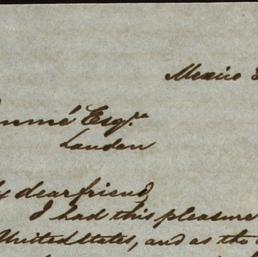 Mexico
Esqre
London
dear friend
I had this pleasure
United States, and as the